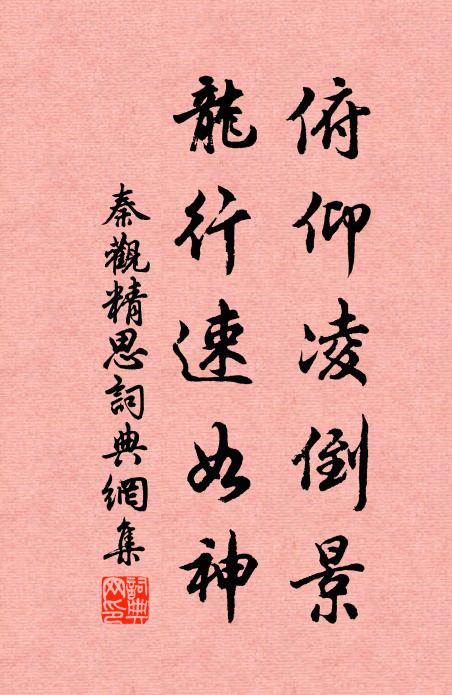 俯仰凌倒景
龍行速如神
秦觀精思詞典網集
詞典網印